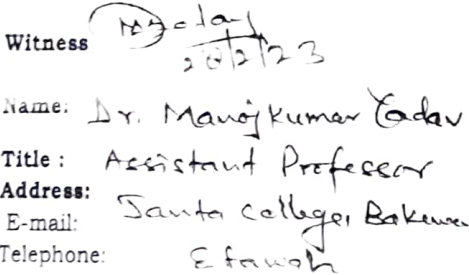 Witness
28/2/23
Name: Dr. Manoj Kumar Yadav
Title : Assistant Professor
Address:
Janta College, Bakewar
E-mail:
Telephone: Etawah